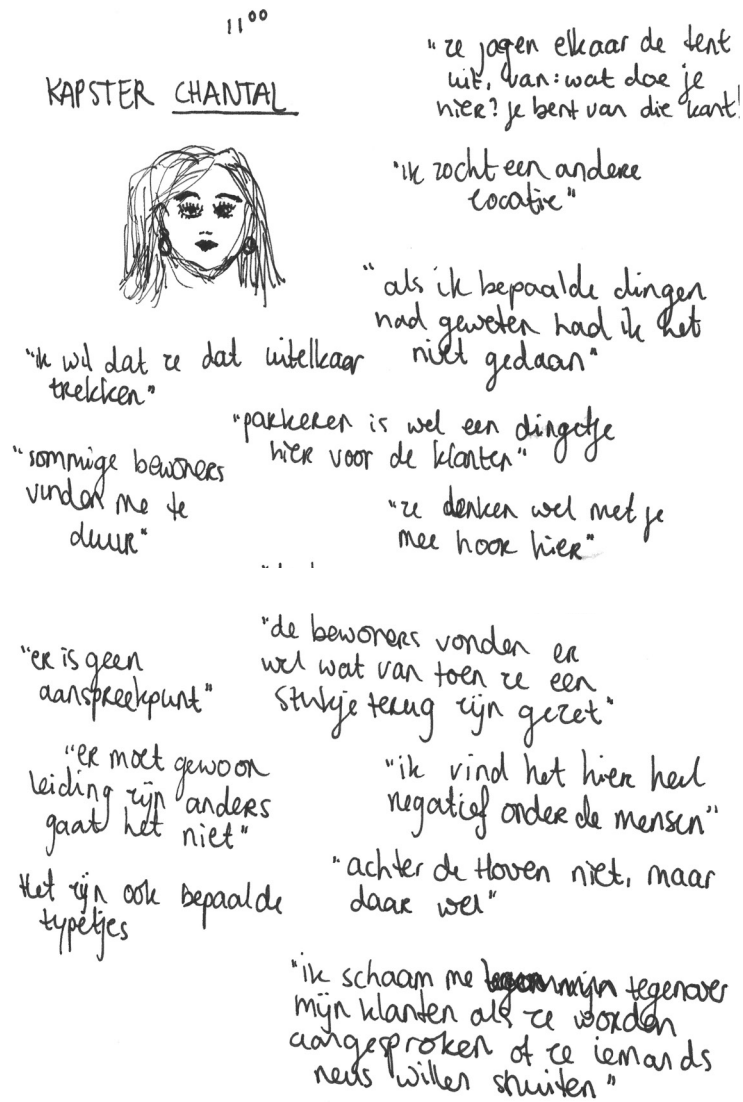 11⁰⁰
KAPSTER CHANTAL
"ze jagen elkaar de tent
uit, van: wat doe je
hier? je bent van die kant!
"ik zocht een andere
locatie"
"als ik bepaalde dingen
had geweten had ik het
niet gedaan"
"ik wil dat ze dat uitelkaar
trekken"
"parkeren is wel een dingetje
hier voor de klanten"
"sommige bewoners
vinden me te
duur"
"ze denken wel met je
mee hoor hier"
"er is geen
aanspreekpunt"
"de bewoners vonden er
wel wat van toen ze een
stukje terug zijn gezet"
"er moet gewoon
leiding zijn anders
gaat het niet"
"ik vind het hier heel
negatief onder de mensen"
"achter de Hoven niet, maar
daar wel"
Het zijn ook bepaalde
typetjes
"ik schaam me tegenover
mijn klanten als ze worden
aangesproken of ze iemands
neus willen snuiten"